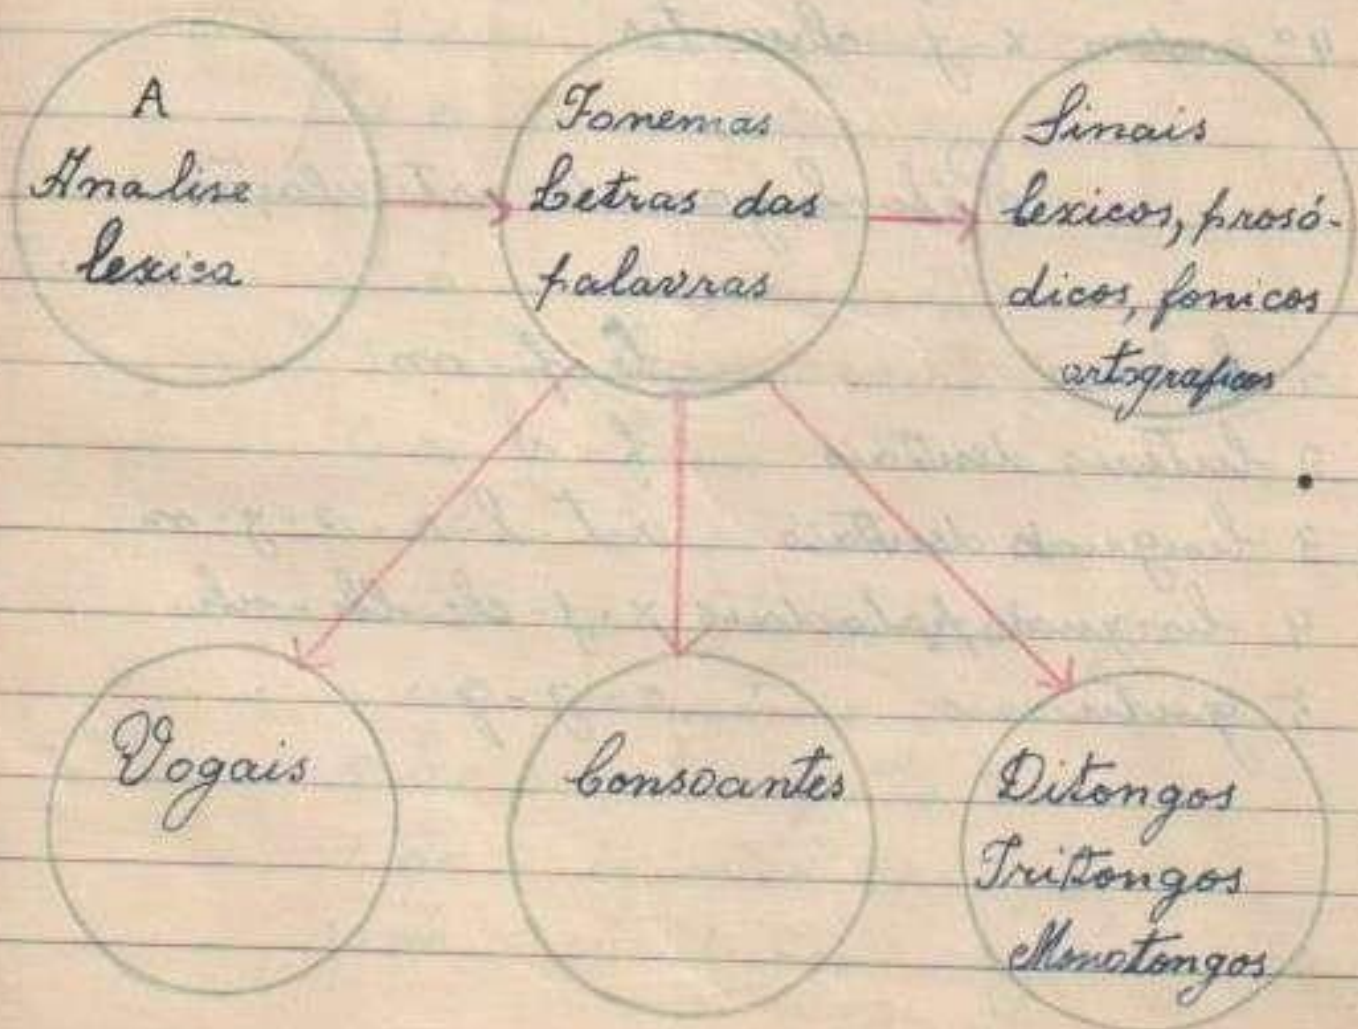 A
Analise
lexica
Fonemas
Letras das
palavras
Sinais
lexicos, prosó-
dicos, fonicos
ortograficos
Vogais
Consoantes
Ditongos
Tritongos
Monotongos